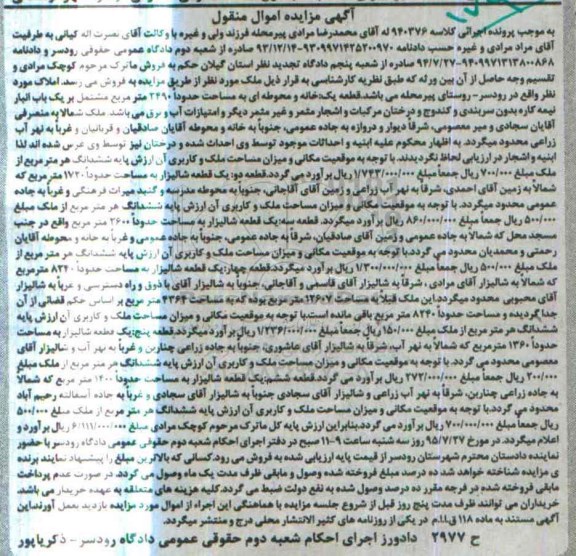 آگهی مزایده اموال منقول
به موجب پرونده اجرائی کلاسه ۹۴۰۳۷۶ له آقای محمدرضا مرادی پیرمحله فرزند ولی و غیره با وکالت آقای نصرت اله کیانی به طرفیت
آقای مراد مرادی و غیره حسب دادنامه ۹۳۰۹۹۷۱۴۲۵۲۰۰۹۷۰-۹۳/۱۲/۱۴ صادره از شعبه دوم دادگاه عمومی حقوقی رودسر و دادنامه
۹۴۰۹۹۷۱۳۱۳۸۰۰۸۶۸-۹۴/۷/۲۷ صادره از شعبه پنجم دادگاه تجدید نظر استان گیلان حکم به فروش ماترک مرحوم کوچک مرادی و
تقسیم وجه حاصل از آن بین ورثه که طبق نظریه کارشناسی به قرار ذیل ملک مورد نظر از طریق مزایده به فروش می رسد. املاک مورد
نظر واقع در رودسر- روستای پیرمحله می باشد.قطعه یک:خانه و محوطه ای به مساحت حدوداً ۲۴۹۰ متر مربع مشتمل بر یک باب انبار
نیمه کاره بدون سربندی و کندوج و درختان مرکبات و اشجار مثمر و غیر مثمر دیگر و امتیازات آب و برق می باشد. ملک شمالا به متصرفی
آقایان سجادی و میر معصومی، شرقاً دیوار و دروازه به جاده عمومی، جنوباً به خانه و محوطه آقایان صادقیان و قربانیان و غرباً به نهر آب
زراعی محدود میگردد. به اظهار محکوم علیه ابنیه و احداثات موجود توسط وی احداث شده و درختان نیز توسط وی غرس شده اند لذا
ابنیه و اشجار در ارزیابی لحاظ نگردیدند. با توجه به موقعیت مکانی و میزان مساحت ملک و کاربری آن ارزش پایه ششدانگ هر متر مربع از
ملک مبلغ ۷۰۰/۰۰۰ ریال جمعاً مبلغ ۱/۷۴۳/۰۰۰/۰۰۰ ریال برآورد می گردد.قطعه دو: یک قطعه شالیزار به مساحت حدوداً ۱۷۲۰ مترمربع که
شمالاً به زمین آقای احمدی، شرقاً به نهر آب زراعی و زمین آقای آقاجانی، جنوباً به محوطه مدرسه و گنبد میراث فرهنگی و غرباً به جاده
عمومی محدود میگردد. با توجه به موقعیت مکانی و میزان مساحت ملک و کاربری آن ارزش پایه ششدانگ هر متر مربع از ملک مبلغ
۵۰۰/۰۰۰ ریال جمعاً مبلغ ۸۶۰/۰۰۰/۰۰۰ ریال برآورد میگردد. قطعه سه:یک قطعه شالیزار به مساحت حدوداً ۲۶۰۰ متر مربع واقع در جنب
مسجد محل که شمالا به جاده عمومی و زمین آقای صادقیان، شرقاً به جاده عمومی، جنوباً به جاده عمومی و غرباً به خانه و محوطه آقایان
رحمتی و محمدیان محدود می گردد.با توجه به موقعیت مکانی و میزان مساحت ملک و کاربری آن ارزش پایه ششدانگ هر متر مربع از
ملک مبلغ ۵۰۰/۰۰۰ ریال جمعاً مبلغ ۱/۳۰۰/۰۰۰/۰۰۰ ریال برآورد میگردد.قطعه چهار:یک قطعه شالیزار به مساحت حدوداً ۸۲۴۰ مترمربع
که شمالا به شالیزار آقای مرادی، شرقاً به شالیزار آقای قاسمی و آقاجانی، جنوباً به شالیزار آقای با ذوق و راه دسترسی و غرباً به شالیزار
آقای محبوبی محدود میگردد.این ملک قبلاً به مساحت ۱۲۶۰۷ متر مربع بوده که به مساحت ۴۳۶۴ متر مربع بر اساس حکم قضائی از آن
جدا گردیده و مساحت حدوداً ۸۲۴۰ متر مربع باقی مانده است.با توجه به موقعیت مکانی و میزان مساحت ملک و کاربری آن ارزش پایه
ششدانگ هر متر مربع از ملک مبلغ ۱۵۰/۰۰۰ ریال جمعاً مبلغ ۱/۲۳۶/۰۰۰/۰۰۰ ریال برآورد میگردد.قطعه پنج:یک قطعه شالیزار به مساحت
حدوداً ۱۳۶۰ مترمربع که شمالا به نهر آب، شرقاً به شالیزار آقای عاشوری، جنوباً به جاده زراعی چنارین و غرباً به نهر آب و شالیزار آقای
معصومی محدود می گردد. با توجه به موقعیت مکانی و میزان مساحت ملک و کاربری آن ارزش پایه ششدانگ هر متر مربع از ملک مبلغ
۲۰۰/۰۰۰ ریال جمعاً مبلغ ۲۷۲/۰۰۰/۰۰۰ ریال برآورد می گردد.قطعه ششم:یک قطعه شالیزار به مساحت حدوداً ۱۴۰۰ متر مربع که شمالا
به جاده زراعی چنارین، شرقاً به نهر آب زراعی و شالیزار آقای سجادی جنوباً به شالیزار آقای سجادی و غرباً به جاده آسفالته رحیم آباد
محدود می گردد.با توجه به موقعیت مکانی و میزان مساحت ملک و کاربری آن ارزش پایه ششدانگ هر متر مربع از ملک مبلغ ۵۰۰/۰۰۰
ریال جمعاً مبلغ ۷۰۰/۰۰۰/۰۰۰ ریال برآورد می گردد.بنابراین ارزش پایه کل ماترک مرحوم کوچک مرادی مبلغ ۶/۱۱۱/۰۰۰/۰۰۰ ریال برآورد و
اعلام میگردد. در مورخ ۹۵/۷/۲۷ روز سه شنبه ساعت ۹-۱۱ صبح در دفتر اجرای احکام شعبه دوم حقوقی عمومی دادگاه رودسر با حضور
نماینده دادستان محترم شهرستان رودسر از قیمت پایه ارزیابی شده به فروش می رود.کسانی که بالاترین مبلغ را پیشنهاد نمایند برنده
ی مزایده شناخته خواهد شد ده درصد مبلغ فروخته شده وصول و مابقی ظرف مدت یک ماه وصول می گردد. در صورت عدم پرداخت
مابقی فروخته شده در فرجه مقرر ده درصد وصول شده به نفع دولت ضبط می گردد.کلیه هزینه های متعلقه به عهده خریدار می باشد.
خریداران می توانند ظرف مدت پنج روز قبل از شروع جلسه مزایده با هماهنگی این اجراء از اموال مورد مزایده بازدید بعمل آورند.این
آگهی مستند به ماده ۱۱۸ ق.ا.م در یکی از روزنامه های کثیر الانتشار محلی درج و منتشر میگردد.
ح ۲۹۷۷ دادورز اجرای احکام شعبه دوم حقوقی عمومی دادگاه رودسر - ذکریاپور